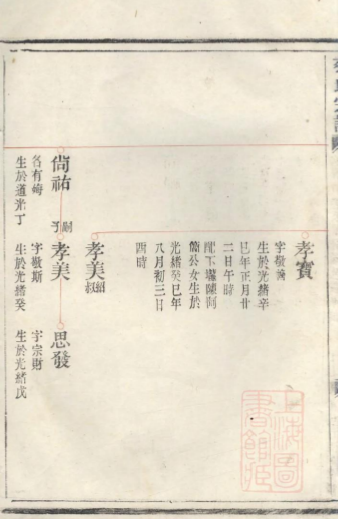 孝寶
字敬善
生於光緒辛
巳年正月廿
二日午時
配下壩陳訶
簡公女生於
光緒癸巳年
八月初三日
酉時
孝美紹叔
尚祐
名有梅
生於道光丁
嗣子孝美
字敬斯
生於光緒癸
思發
字宗財
生於光緒戊
上海圖書館藏